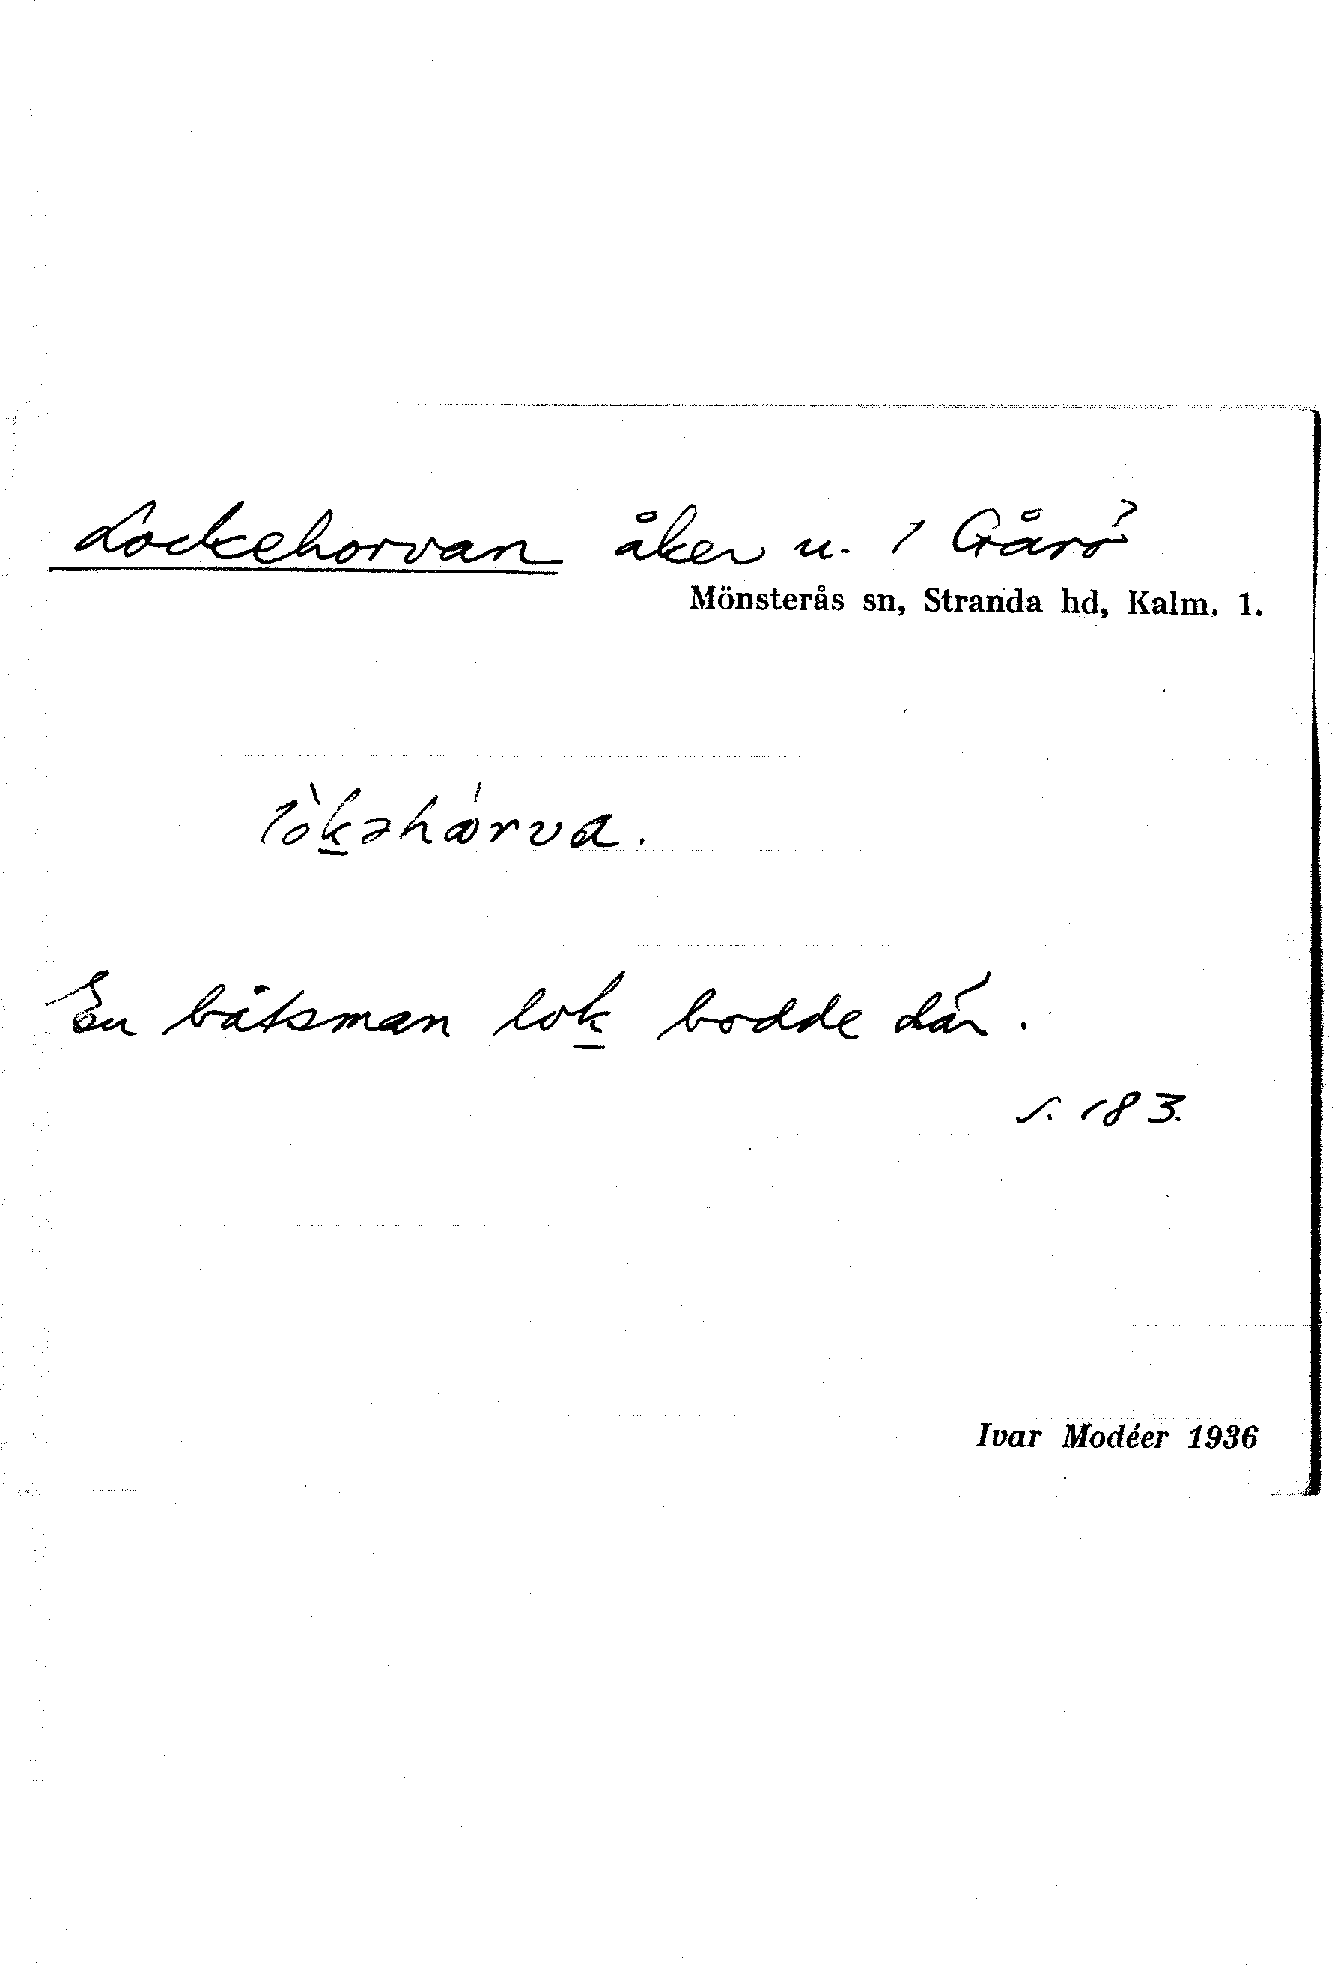 Lockehorvan åker u. 1 Gårö
Mönsterås sn, Stranda hd, Kalm. l.
lòkəhórva.
En båtsman lok bodde där.
s. 183.
Ivar Modéer 1936